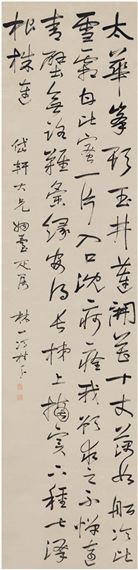 太華峯頭玉井蓮開花十丈藕如船冷比
雪霜甘比蜜一片入口沈痾痊我欲求之不憚遠
青壁無路難夤緣安得長梯上摘實下種七澤
根株連
岱軒大兄 林